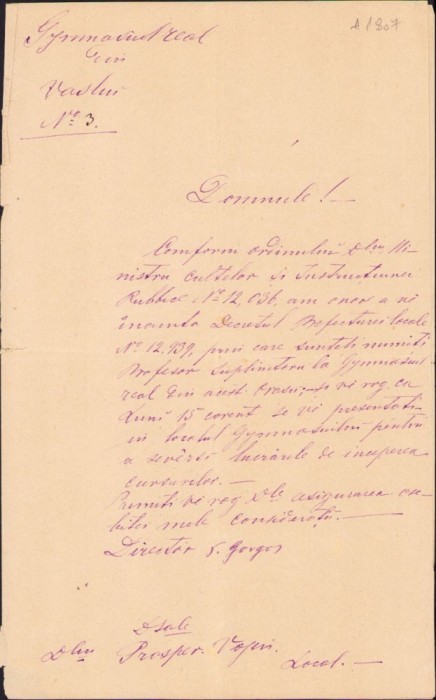 A 1807
Gymnasiul real
din
Vaslui
No. 3.
Domnule! —
Comform ordinului Dlui Mi-
nistru cultelor și Instrucțiunei
Publice No 12,036, am onor a vĕ
înainta Decretul Prefecturei locale
No 12,939, prin care sunteti numiti
Profesor Suplinitoru la Gymnasiul
real din acest orasiu; și ve rog ca
Luni 15 corent se ve presentati
in localul Gymnasiului pentru
a seversi lucrările de inceperea
cursurilor. —
Primiti ve rog Dle asigurarea ose-
bitei mele considerații. —
Director S. Gorgos
Dsale
Dlui Prosper. Vopin
Local. —